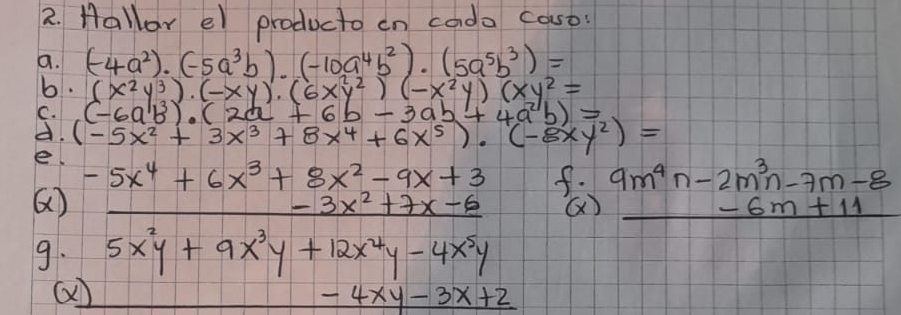 2. Hallar el producto en cada caso:
a. (-4a²).(-5a³b).(-10a⁴b²).(5a⁵b³) =
b. (x²y³).(-xy).(6x²y²)(-x²y)(xy² =
c. (-6ab³).(2a + 6b - 3ab + 4a²b) =
d. (-5x² + 3x³ + 8x⁴ + 6x⁵).(-8xy²) =
e.
-5x⁴ + 6x³ + 8x² - 9x + 3
(x) - 3x² + 7x - 6
f. 9m⁴n - 2m³n - 7m - 8
(x) - 6m + 11
g. 5x²y + 9x³y + 12x⁴y - 4x⁵y
(x) - 4xy - 3x + 2